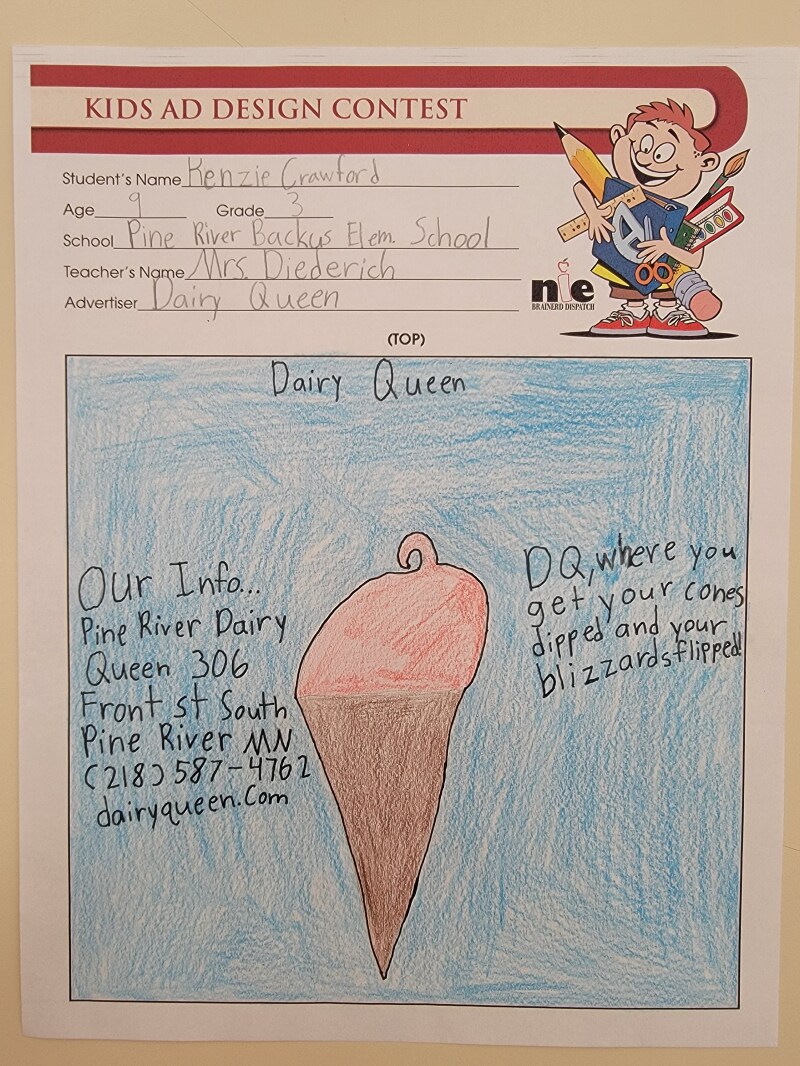 KIDS AD DESIGN CONTEST
Student's Name Kenzie Crawford
Age 9 Grade 3
School Pine River Backus Elem. School
Teacher's Name Mrs. Diederich
Advertiser Dairy Queen
nie
BRAINERD DISPATCH
(TOP)
Dairy Queen
Our Info...
Pine River Dairy
Queen 306
Front st South
Pine River MN
(218) 587-4762
dairyqueen.com
DQ, where you
get your cones
dipped and your
blizzards flipped!